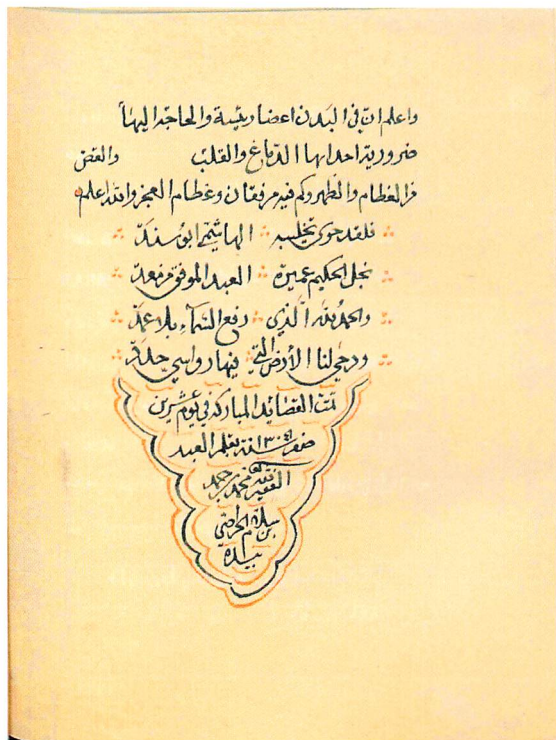 واعلم ان في البدن اعضا رئيسة والحاجة اليها
ضرورية احداها الدماغ والقلب والغض
من العظام والظهر وكم فيه مرفقان وعظام العجز والله اعلم
فلقد حوى الهاشمي ابو سند
نجل الحكيم عميرة العبد الموفق من معد
والحمد لله الذي رفع السماء بلا عمد
ودحى لنا الأرض التي فيها رواسي
تمت القصائد المباركة في يوم
صفر سنة ١٣٠٤ بقلم العبد
الفقير لله محمد بن حمد
بن سلام
بيده